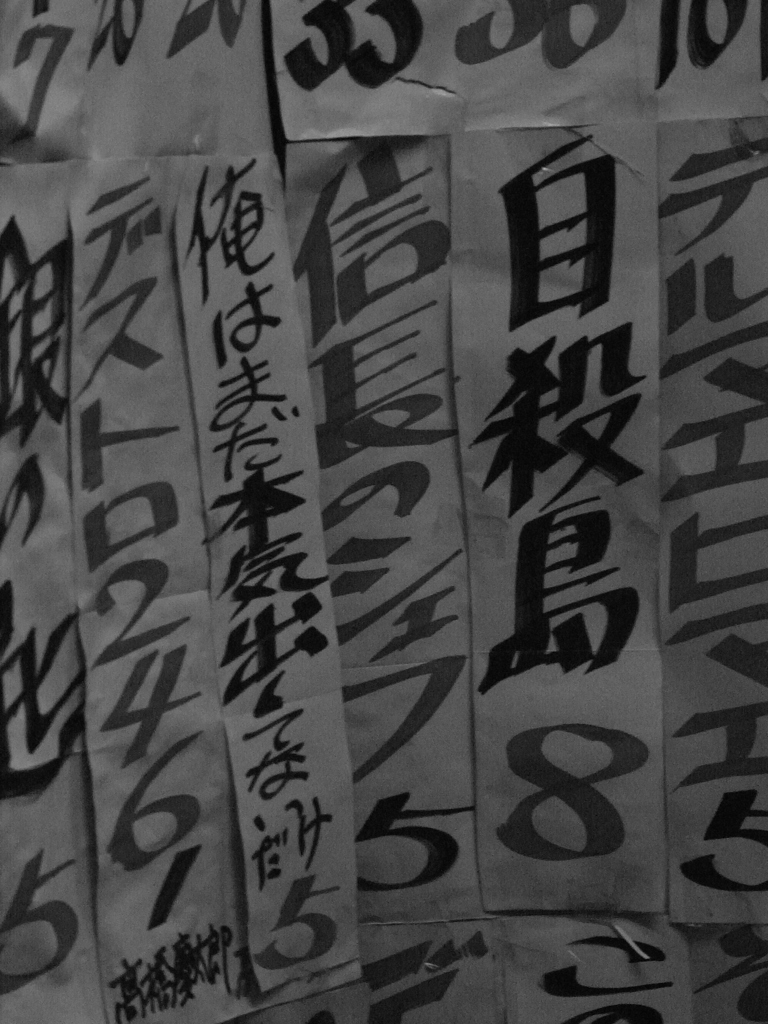 36
33
7
テルマエロマエ 5
自殺島 8
信長のシェフ 5
俺はまだ本気出してないだけ 5
デストロ246 1
高橋慶太郎
銀の匙 5